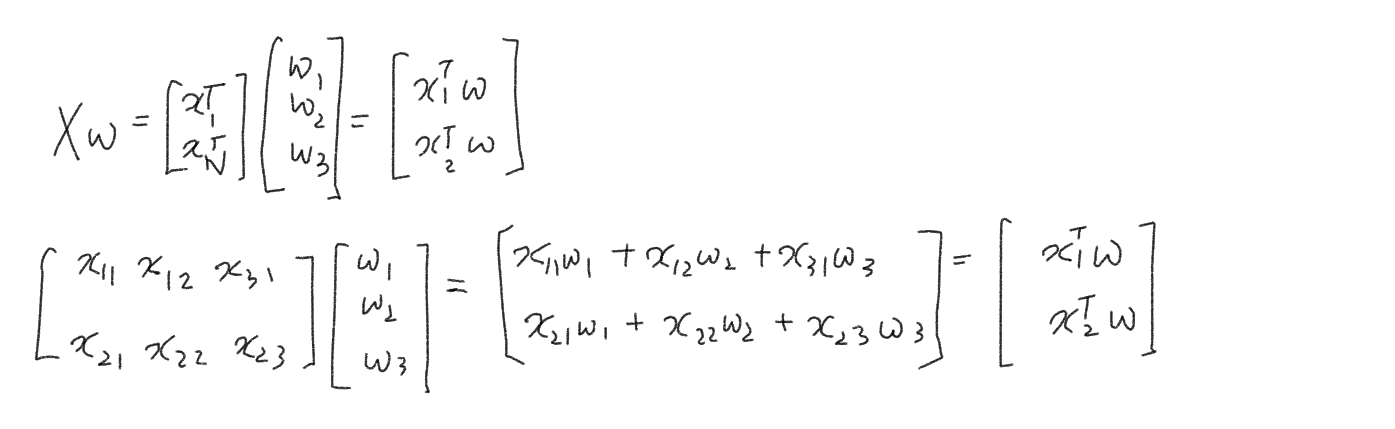 Xw = [x₁ᵀ; x_Nᵀ] [w₁; w₂; w₃] = [x₁ᵀw; x₂ᵀw]
[x₁₁ x₁₂ x₃₁; x₂₁ x₂₂ x₂₃] [w₁; w₂; w₃] = [x₁₁w₁ + x₁₂w₂ + x₃₁w₃; x₂₁w₁ + x₂₂w₂ + x₂₃w₃] = [x₁ᵀw; x₂ᵀw]